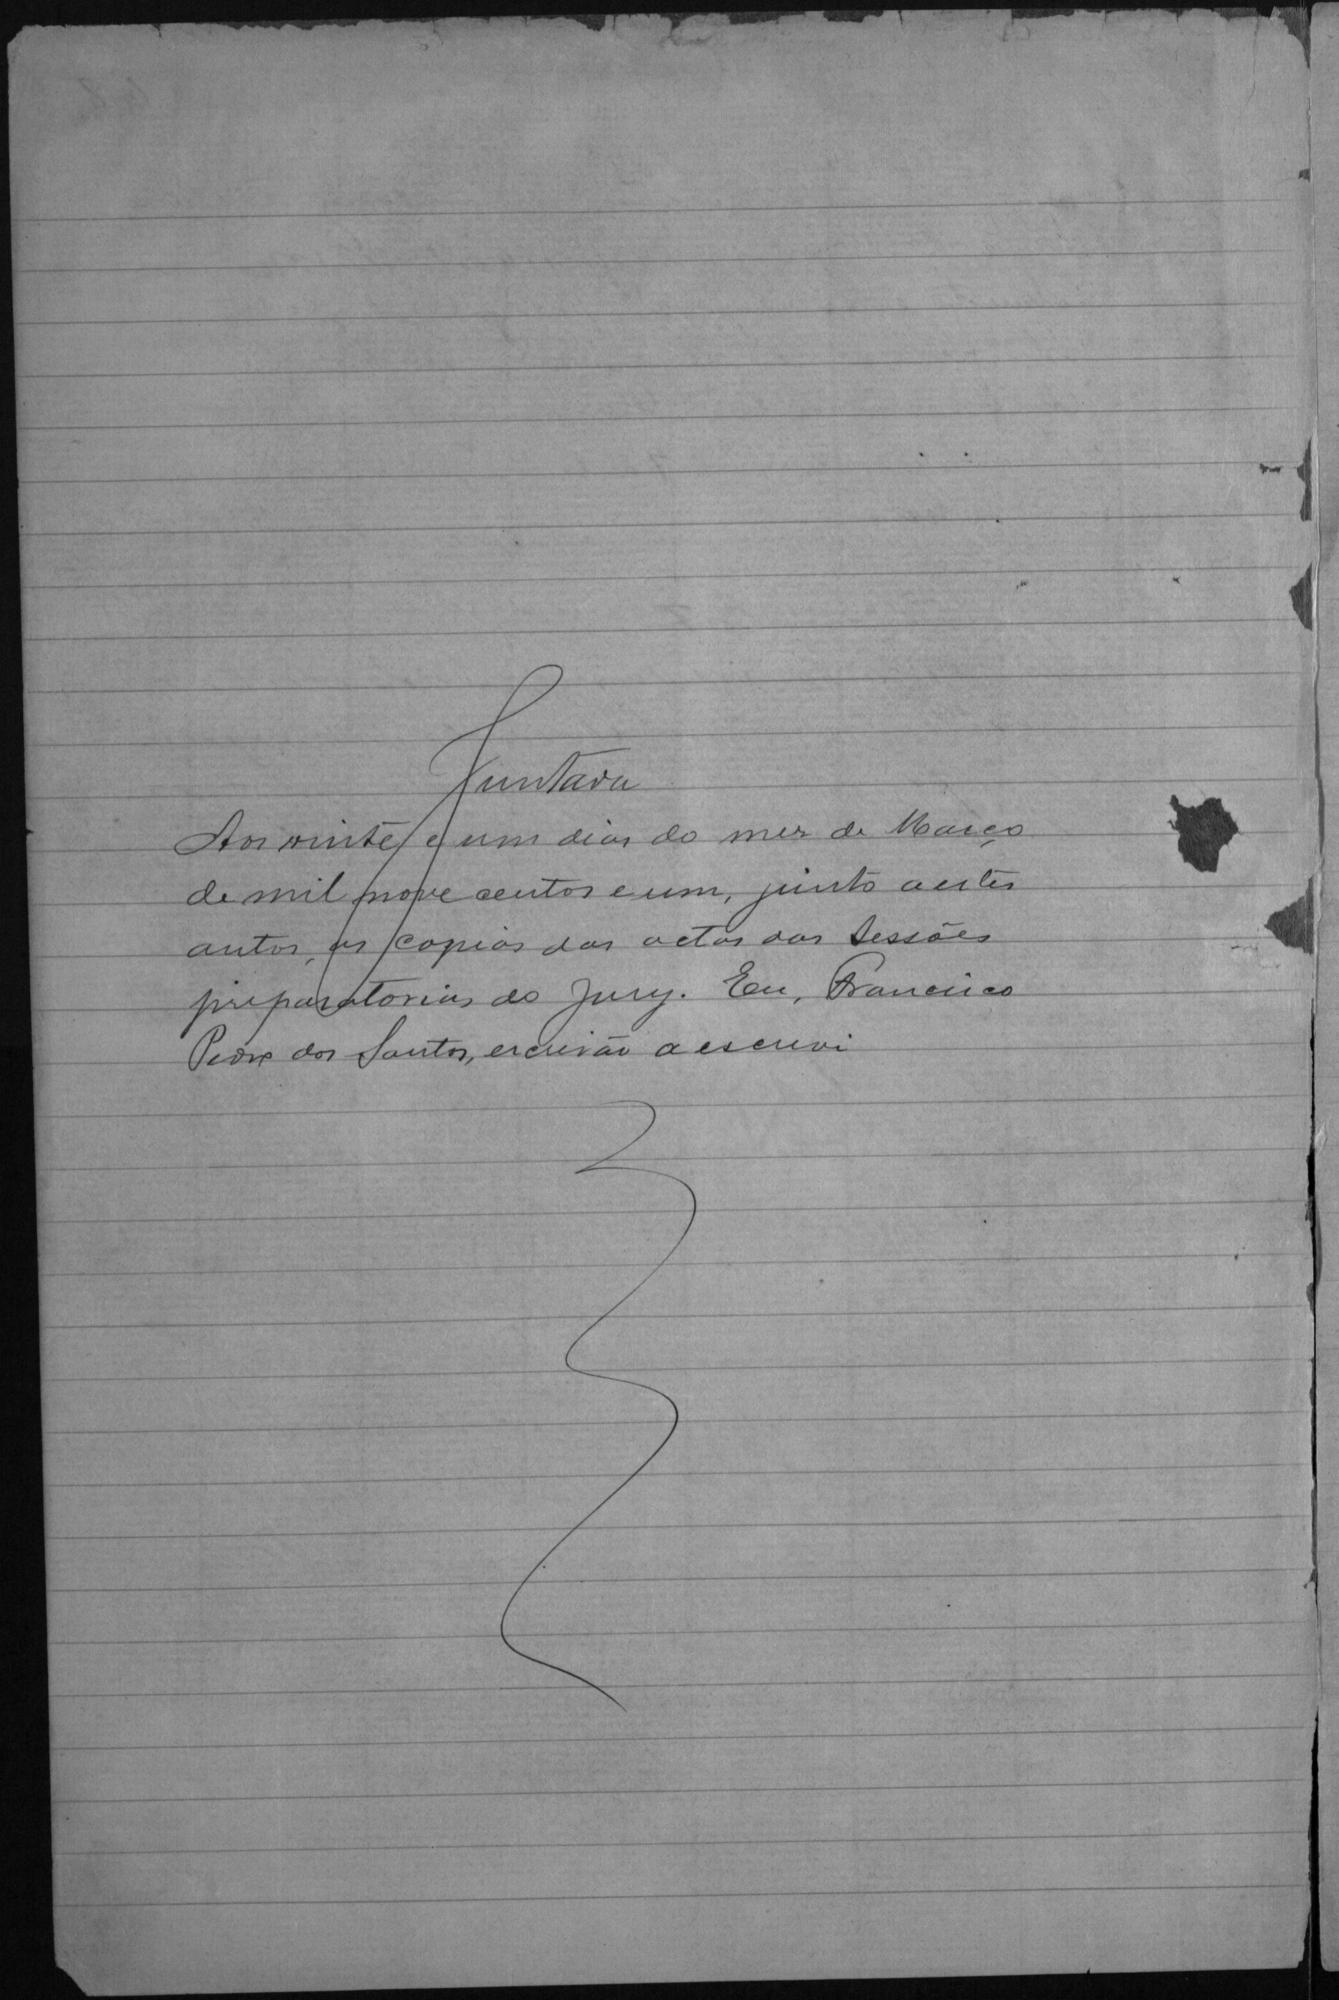 Juntada
Aos vinte e um dias do mez de Março
de mil nove centos e um, junto a estes
autos, as copias das actas das Sessões
preparatorias do Jury. Eu, Francisco
Pedro dos Santos, escrivão a escrevi